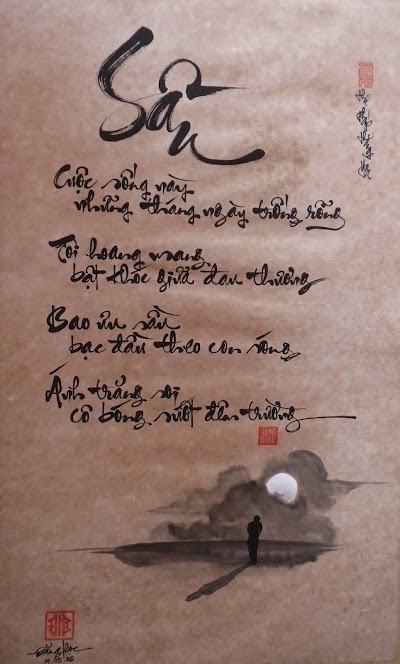 Sầu
Cuộc sống này
những tháng ngày trống rỗng
Tôi hoang mang
bật khóc giữa đau thương
Bao ưu sầu
bạc đầu theo con sóng
Ánh trăng soi
cô bóng suốt đêm trường